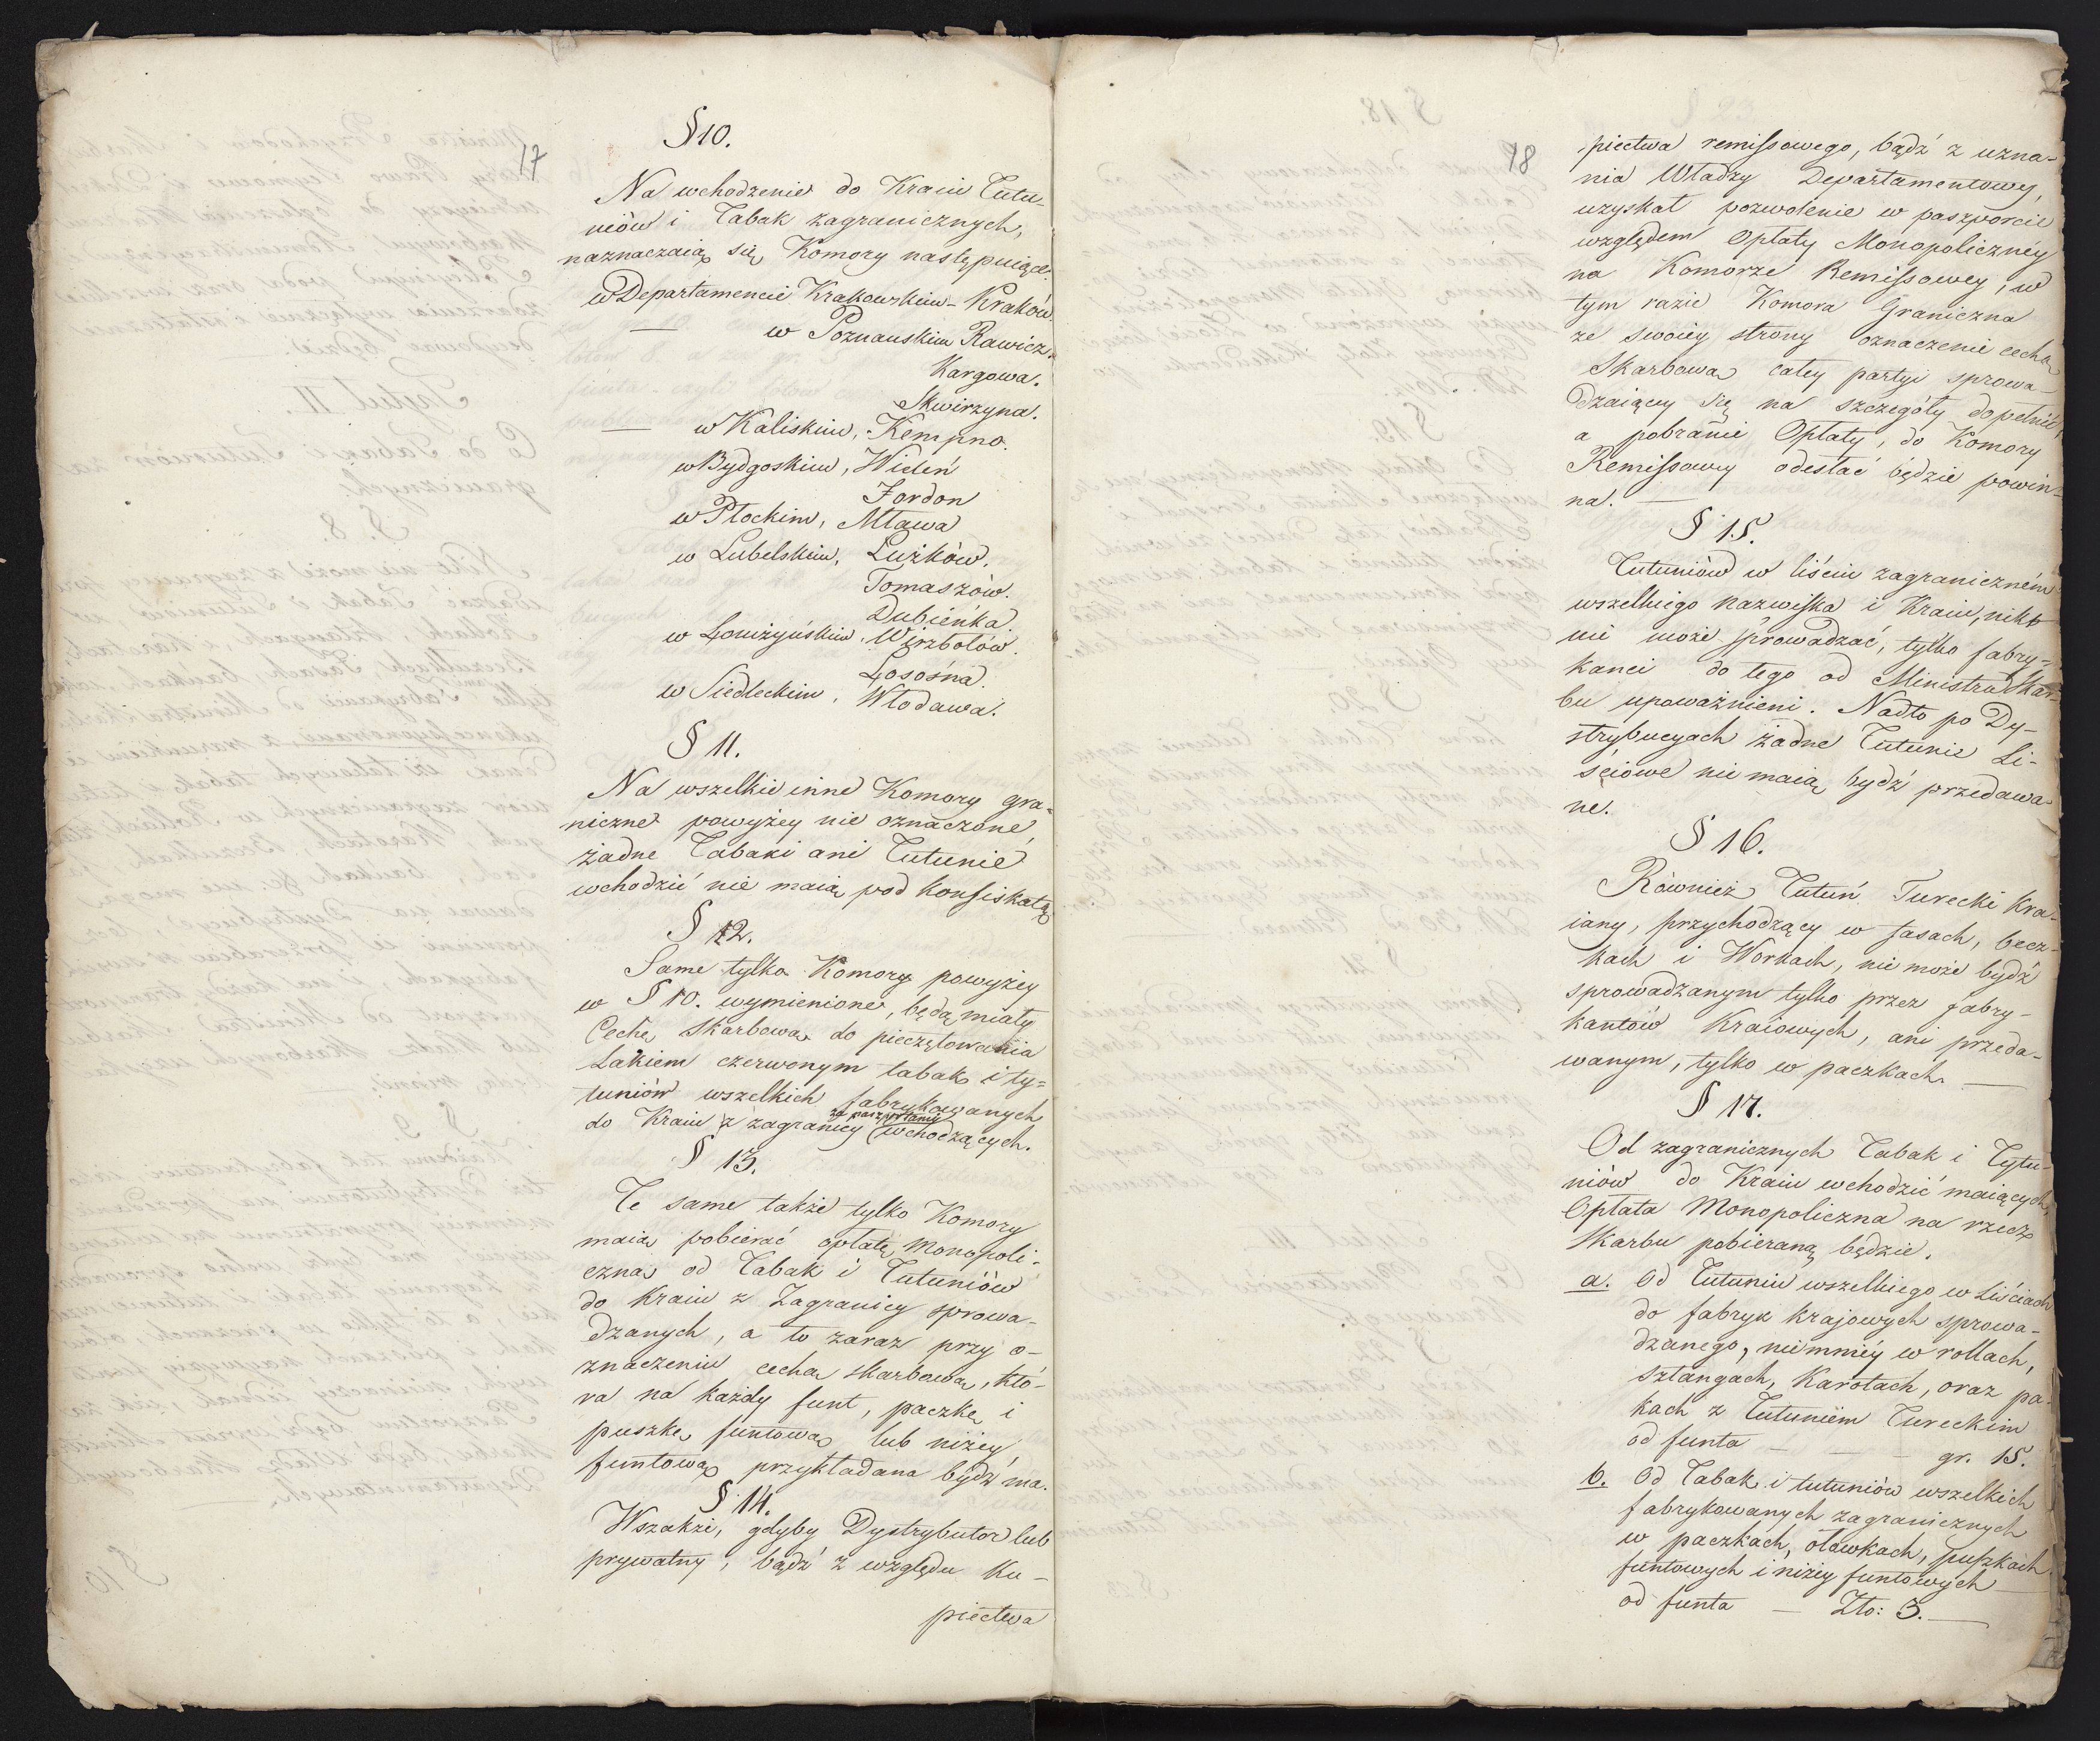 17
§ 10.
Na wchodzenie do Kraiu Tutu-
niów i Tabak zagranicznych,
naznaczaią się Komory następuiące.
w Departamencie Krakowskim - Kraków.
— w Poznanskim Rawicz.
Kargowa.
Skwirzyna.
— w Kaliskim, Kempno.
w Bydgoskim, Wideń
Fordon
w Płockim, Mława
w Lubelskim, Łużków.
Tomaszów.
Dubieńka
w Łomżyńskim, Wirzbołów.
Łosośna.
w Siedleckim, Włodawa.
§ 11.
Na wszelkie inne Komory gra-
niczne powyżey nie oznaczone,
żadne Tabaki ani Tutunie
wchodzić nie maią pod konfiskatą
§ 12.
Same tylko Komory powyżey
w § 10. wymienione, będą miały
Cechę Skarbową do pieczętowania
Lakiem czerwonym tabak i ty-
tuniów wszelkich fabrykowanych
za paszportami
do Kraiu z zagranicy wchodzących.
§ 13.
Te same także tylko Komory
maią pobierać opłatę Monopoli-
czną od Tabak i Tutuniów
do Kraiu z Zagranicy sprowa-
dzanych, a to zaraz przy o-
znaczeniu cechą skarbową, któ-
ra na każdy funt, paczkę i
puszkę funtową lub niżey
funtową przykładana bydź ma.
§ 14.
Wszakże, gdyby Dystrybutor lub
prywatny, bądź z względu Ku-
piectwa
18
piectwa remissowego, bądź z uzna-
nia Władzy Departamentowey,
uzyskał pozwolenie w paszporcie
względem Opłaty Monopoliczney
na Komorze Remissowey, w
tym razie Komora Graniczna
ze swoiey strony oznaczenie cechą
Skarbową całey partyi sprowa-
dzaiącey się na szczegóły dopełnić,
a pobranie Opłaty, do Komory
Remissowey odesłać będzie powin-
na. —
§ 15.
Tutuniów w liściu zagranicznem
wszelkiego nazwiska i Kraiu, nikt
nie może sprowadzać, tylko fabry-
kanci do tego od Ministra Skar-
bu upoważnieni. Nadto po Dy-
strybucyach żadne Tutunie Li-
ściowe nie maią bydź przedawa-
ne.
§ 16.
Również Tutuń Turecki Kra-
iany, przychodzący w fasach, becz-
kach i Workach, nie może bydź
sprowadzanym tylko przez fabry-
kantów Kraiowych, ani przeda-
wanym, tylko w paczkach. —
§ 17.
Od zagranicznych Tabak i Tytu-
niów do Kraiu wchodzić maiących,
Opłata Monopoliczna na rzecz
Skarbu pobieraną będzie.
a. Od Tutuniu wszelkiego w Liściach
do fabryk krajowych sprowa-
dzanego, niemniéy w rollach,
sztangach, Karotach, oraz pa-
kach z Tutuniem Tureckim
od funta — — gr. 15.
b. Od Tabak i tutuniów wszelkich
fabrykowanych zagranicznych
w paczkach, ołowkach, puszkach
funtowych i niżey funtowych
od funta — Zło: 3. —